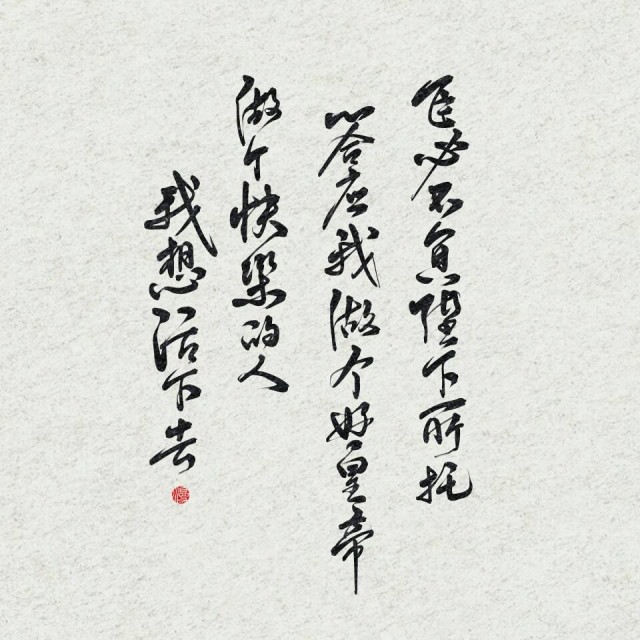 臣必不負陛下所托
答应我做个好皇帝
做个快樂的人
我想活下去